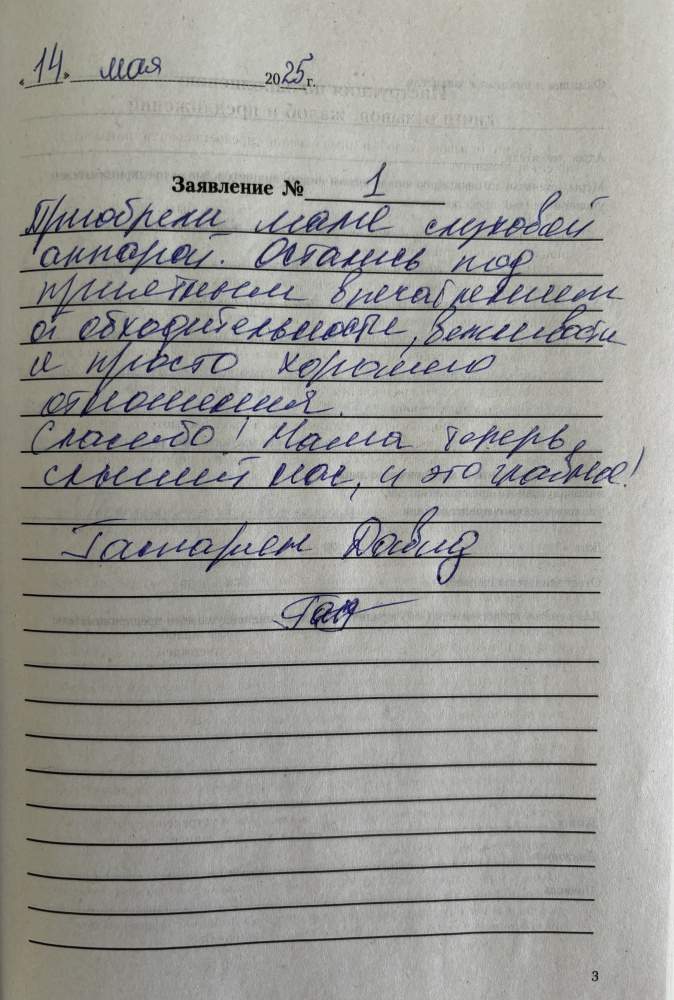 «14» мая 2025 г.
Заявление № 1
Приобрели маме слуховой
аппарат. Остались под
приятным впечатлением
от обходительности, вежливости
и просто хорошего
отношения.
Спасибо! Мама теперь
слышит нас, и это главное!
Гаспарян Давид
3